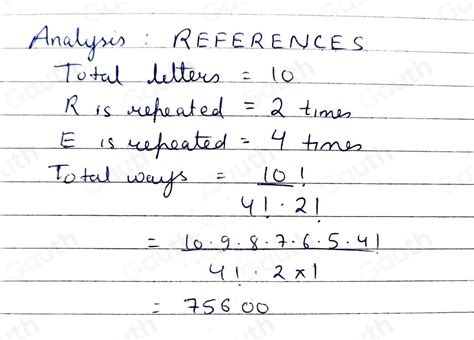 Analysis : REFERENCES
Total letters = 10
R is repeated = 2 times
E is repeated = 4 times
Total ways = 10!
4! · 2!
= 10·9·8·7·6·5·4!
4! · 2×1
= 75600